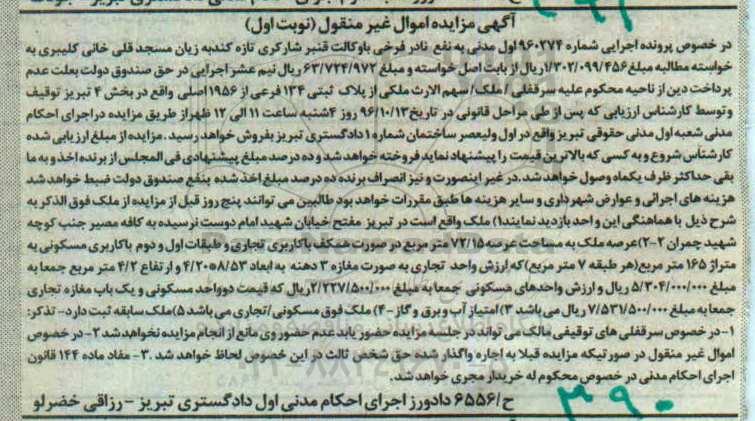 آگهی مزایده اموال غیر منقول (نوبت اول)
در خصوص پرونده اجرایی شماره ۹۶۰۲۷۴ اول مدنی به نفع نادر فرخی باوکالت قنبر شارکری تازه کندبه زیان مسجد قلی خانی کلیبری به
خواسته مطالبه مبلغ ۱/۳۰۲/۰۹۹/۴۵۶ریال از بابت اصل خواسته و مبلغ ۶۳/۷۲۴/۹۷۲ ریال نیم عشر اجرایی در حق صندوق دولت بعلت عدم
پرداخت دین از ناحیه محکوم علیه سرقفلی / ملک/ سهم الارث ملکی از پلاک ثبتی ۱۳۴ فرعی از ۱۹۵۶اصلی واقع در بخش ۴ تبریز توقیف
وتوسط کارشناس ارزیابی که پس از طی مراحل قانونی در تاریخ۹۶/۱۰/۱۳ روز ۴شنبه ساعت ۱۱ الی ۱۲ ظهراز طریق مزایده دراجرای احکام
مدنی شعبه اول مدنی حقوقی تبریز واقع در اول ولیعصر ساختمان شماره ۱ دادگستری تبریز بفروش خواهد رسید . مزایده از مبلغ ارزیابی شده
کارشناس شروع و به کسی که بالاترین قیمت را پیشنهاد نماید فروخته خواهد شد و ده درصد مبلغ پیشنهادی فی المجلس از برنده اخذ و به ما
بقی حداکثر ظرف یکماه وصول خواهد شد. در غیر اینصورت و نیز انصراف برنده ده درصد مبلغ اخذ شده بنفع صندوق دولت ضبط خواهد شد
هزینه های اجرائی و عوارض شهرداری و سایر هزینه ها طبق مقررات خواهد بود طالبین می توانند پنج روز قبل از مزایده از ملک فوق الذکر به
شرح ذیل با هماهنگی این واحد بازدید نمایند۱) ملک واقع است در تبریز مفتح خیابان شهید امام دوست نرسیده به کافه مصیر جنب کوچه
شهید چمران ۲-۲)عرصه ملک به مساحت عرصه ۷۲/۱۵ متر مربع در صورت همکف باکاربری تجاری و طبقات اول و دوم باکاربری مسکونی به
متراژ ۱۶۵ متر مربع(هر طبقه ۷ متر مربع)که ارزش واحد تجاری به صورت مغازه ۳ دهنه به ابعاد ۸/۵۳*۴/۲۰ و ارتفاع ۴/۲ متر مربع جمعا به
مبلغ ۵/۳۰۴/۰۰۰/۰۰۰ ریال و ارزش واحدهای مسکونی جمعا به مبلغ ۲/۲۲۷/۵۰۰/۰۰۰ریال که قیمت دوواحد مسکونی و یک باب مغازه تجاری
جمعا به مبلغ ۷/۵۳۱/۵۰۰/۰۰۰ ریال می باشد ۳) امتیاز آب و برق و گاز -۴) ملک فوق مسکونی /تجاری می باشد ۵)ملک سابقه ثبت دارد- تذکر:
۱- در خصوص سرقفلی های توقیفی مالک می تواند در جلسه مزایده حضور یابد. عدم حضور وی مانع از انجام مزایده نخواهد شد ۲- در خصوص
اموال غیر منقول در صورتیکه مزایده قبلا به اجاره واگذار شده حق شخص ثالث در این خصوص لحاظ خواهد شد .۳- مفاد ماده ۱۴۴ قانون
اجرای احکام مدنی در خصوص محکوم له خریدار مجری خواهد شد.
ح/۶۵۵۶ دادورز اجرای احکام مدنی اول دادگستری تبریز - رزاقی خضرلو
۳۹۰